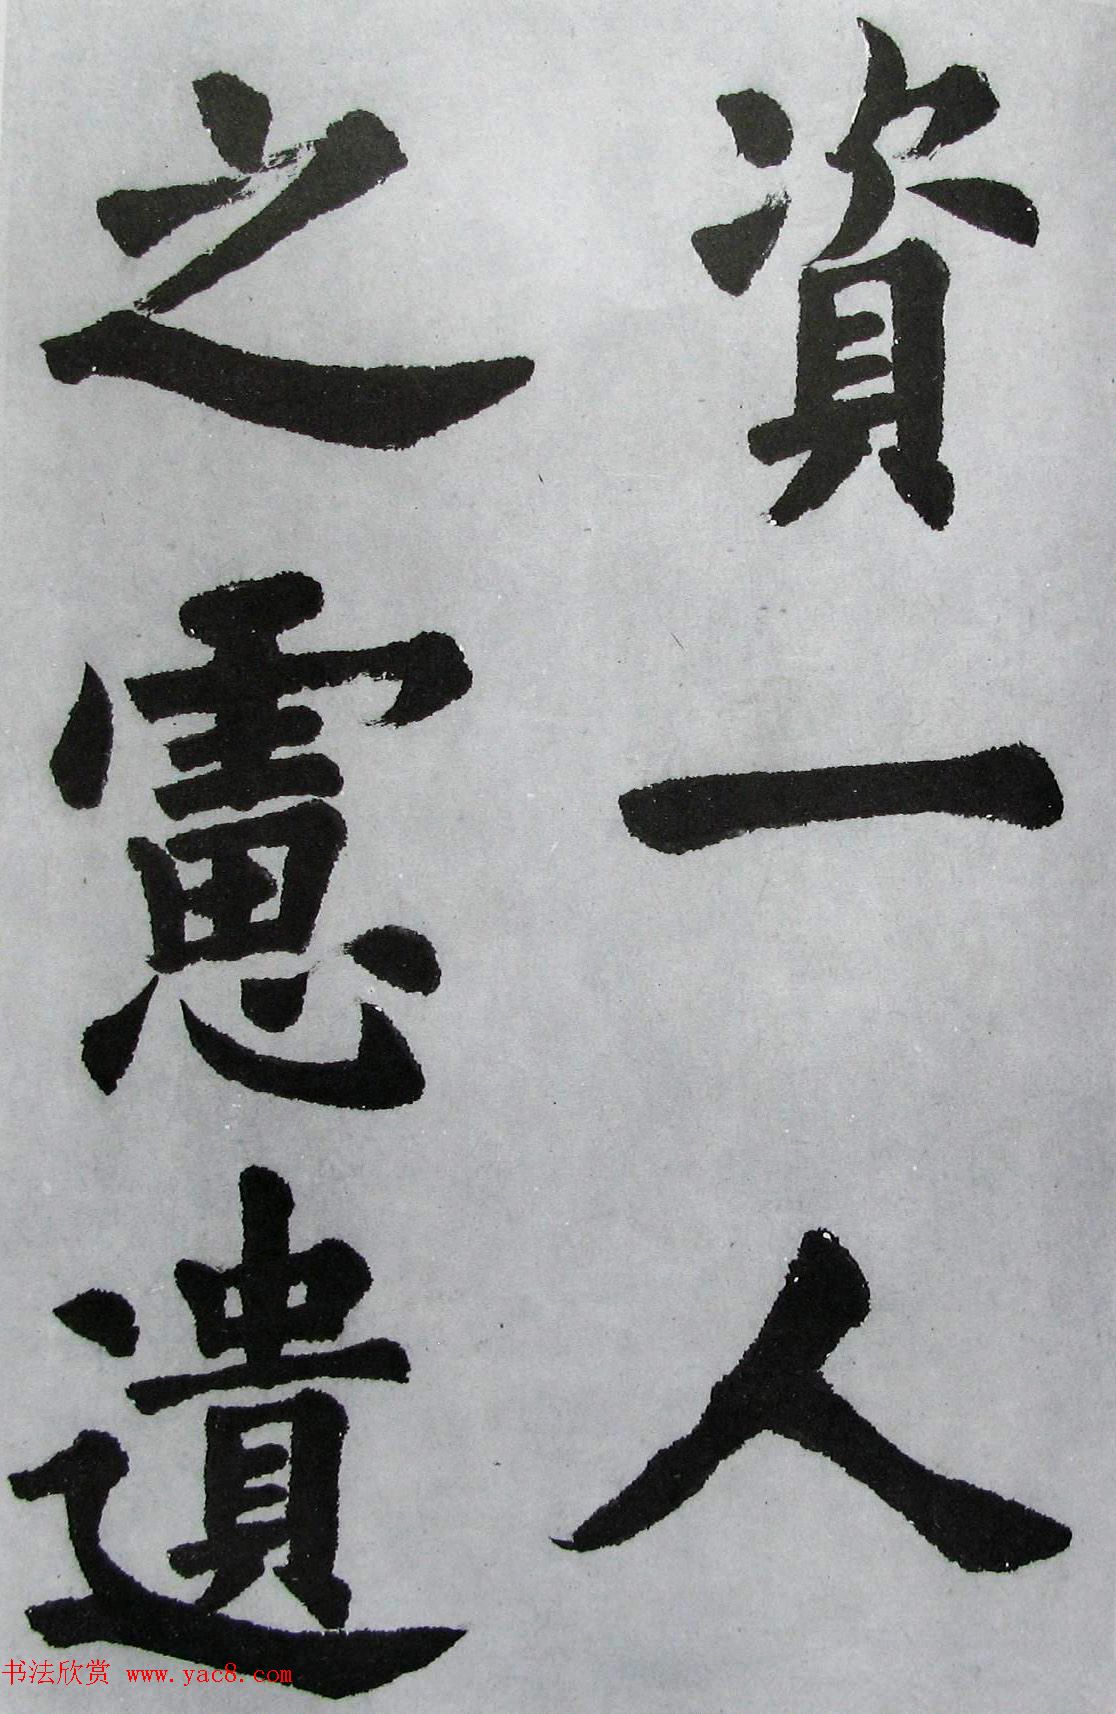 資一人
之慮遺
书法欣赏 www.yac8.com